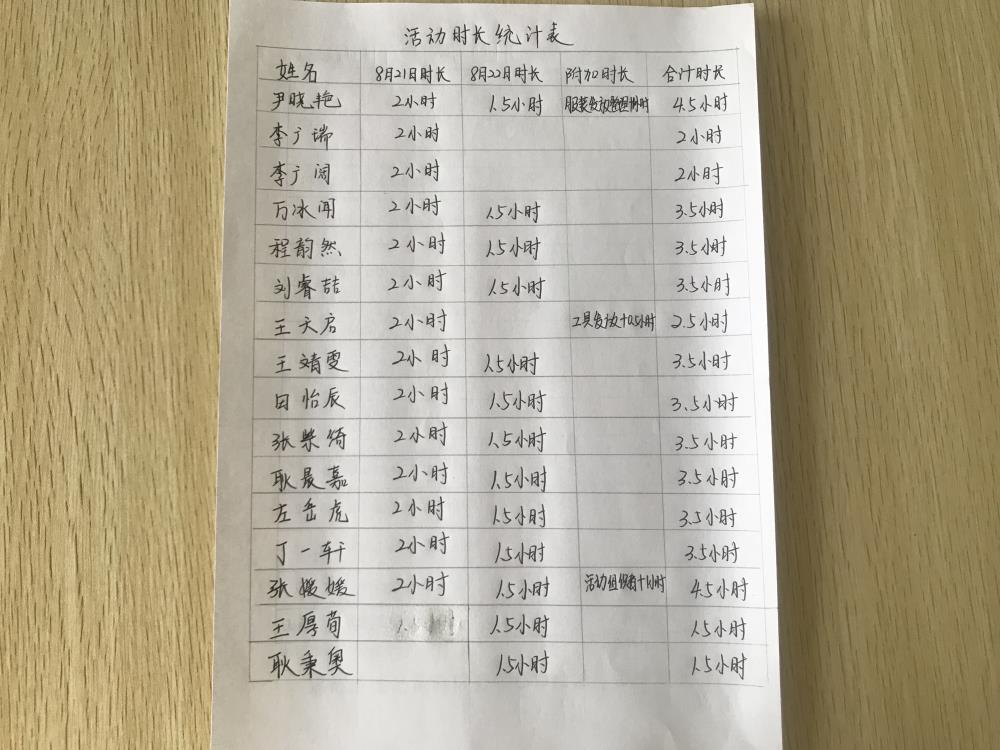 活动时长统计表
姓名 8月21日时长 8月22日时长 附加时长 合计时长
尹晓艳 2小时 1.5小时 服装发放整理+1小时 4.5小时
李广瑞 2小时 2小时
李广阔 2小时 2小时
万冰闻 2小时 1.5小时 3.5小时
程韵然 2小时 1.5小时 3.5小时
刘睿喆 2小时 1.5小时 3.5小时
王天启 2小时 工具发放+0.5小时 2.5小时
王靖雯 2小时 1.5小时 3.5小时
田怡辰 2小时 1.5小时 3.5小时
张紫绮 2小时 1.5小时 3.5小时
耿晨嘉 2小时 1.5小时 3.5小时
左岳虎 2小时 1.5小时 3.5小时
丁一轩 2小时 1.5小时 3.5小时
张媛媛 2小时 1.5小时 活动组织者+1小时 4.5小时
王厚荀 1.5小时 1.5小时
耿秉奥 1.5小时 1.5小时